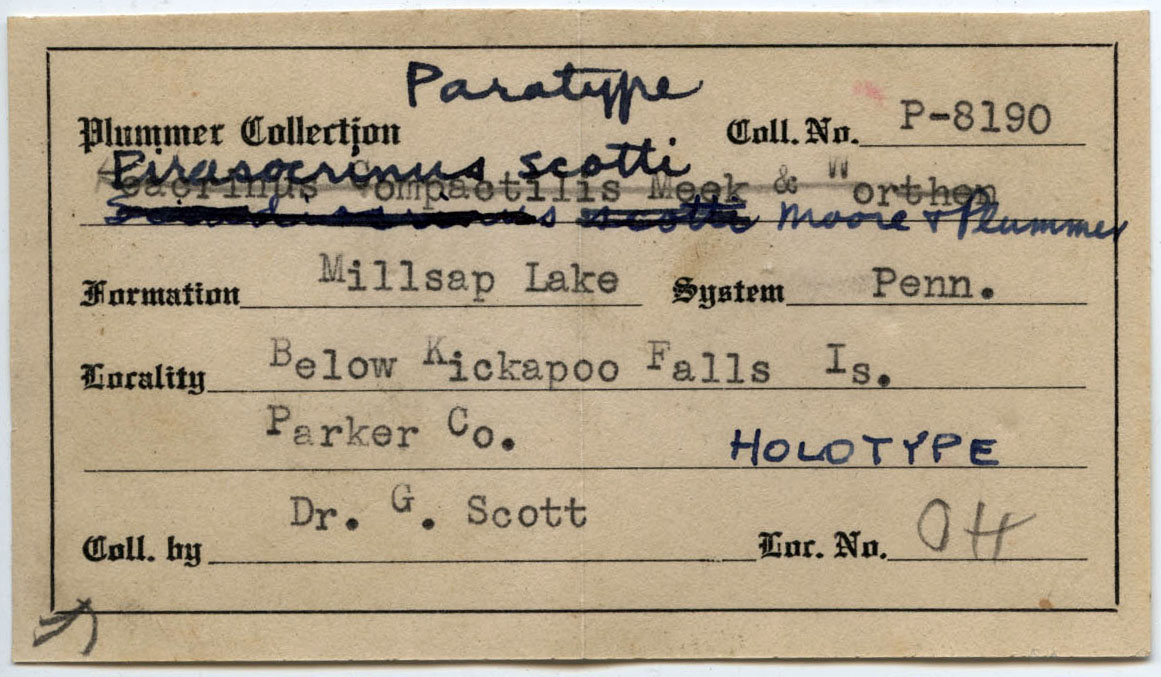 Paratype
Plummer Collection Coll. No. P-8190
Pirasocrinus scotti
Compactilis Meek & Worthen
scotti Moore & Plummer
Formation Millsap Lake System Penn.
Locality Below Kickapoo Falls Is.
Parker Co.
HOLOTYPE
Coll. by Dr. G. Scott Loc. No. OH